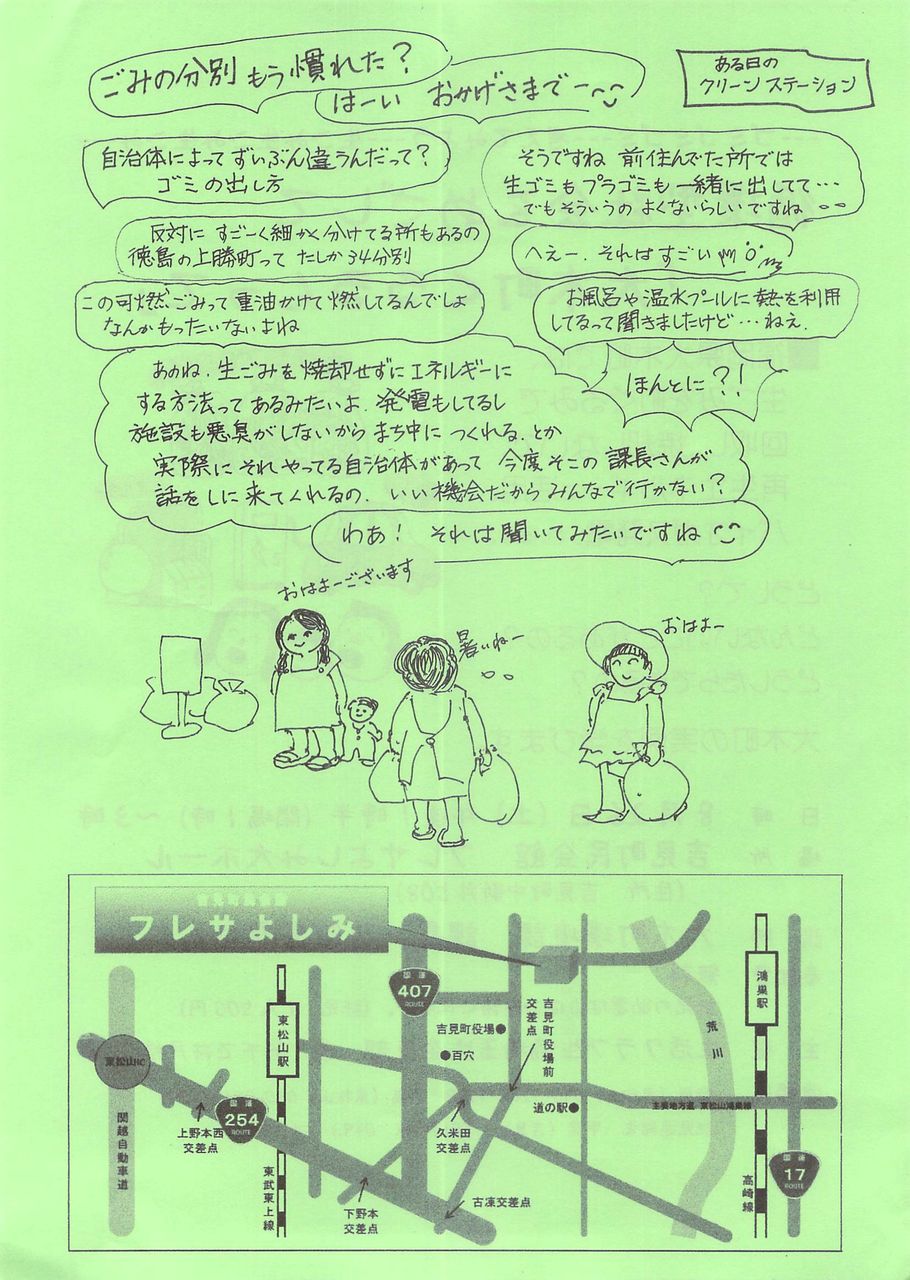 ごみの分別 もう慣れた?
はーい おかげさまでー
ある日の
クリーン ステーション
自治体によって ずいぶん違うんだって?
ゴミの出し方
そうですね 前住んでた所では
生ゴミも プラゴミも 一緒に出してて…
でもそういうの よくないらしいですね
反対に すごーく細かく分けてる所もあるの
徳島の上勝町って たしか34分別
へえー、それはすごい
この可燃ごみって 重油かけて 燃してるんでしょ
なんか もったいないよね
お風呂や温水プールに熱を利用
してるって聞きましたけど…ねえ.
あのね、生ごみを焼却せずにエネルギーに
する方法って あるみたいよ、発電もしてるし
施設も悪臭がしないから まち中に つくれる、とか
実際に それやってる自治体があって 今度そこの 課長さんが
話をしに来てくれるの、いい機会だから みんなで行かない?
ほんとに?!
わあ! それは聞いてみたいですね
おはよーございます
暑いねー
おはよー
フレサよしみ
国道
407
ROUTE
吉見町役場●
●百穴
吉見町役場前
交差点
荒川
鴻巣駅
東松山駅
東松山IC
国道
254
ROUTE
上野本西
交差点
関越自動車道
東武東上線
下野本
交差点
久米田
交差点
古凍交差点
道の駅●
主要地方道 東松山鴻巣線
国道
17
ROUTE
高崎線